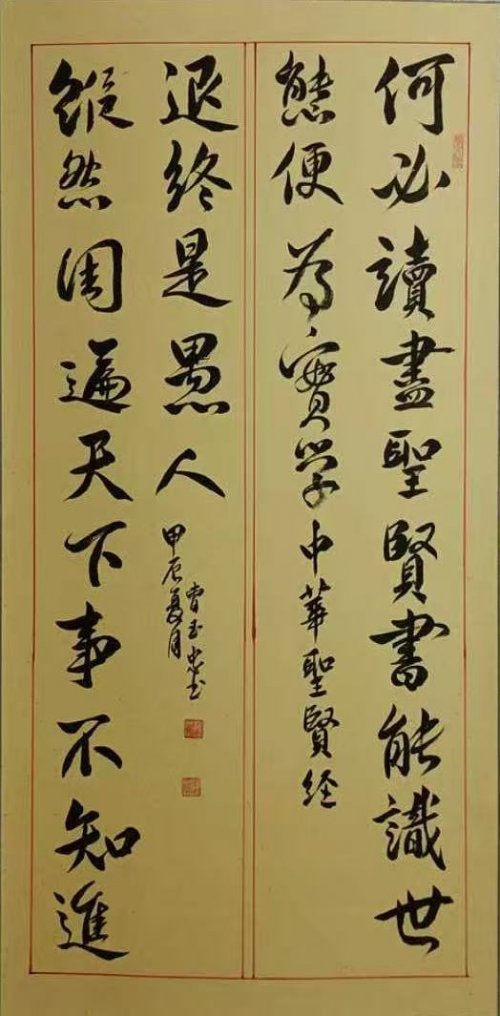 何必讀盡聖賢書能識世
態便為實学
中華聖賢經
縱然周遍天下事不知進
退終是愚人
甲辰夏月
曹玉忠书